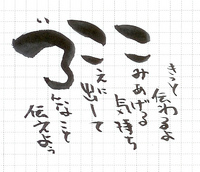 きっと伝わるよ
こみあげる
気持ち
こえに
出して
いろんなこと
伝えよう